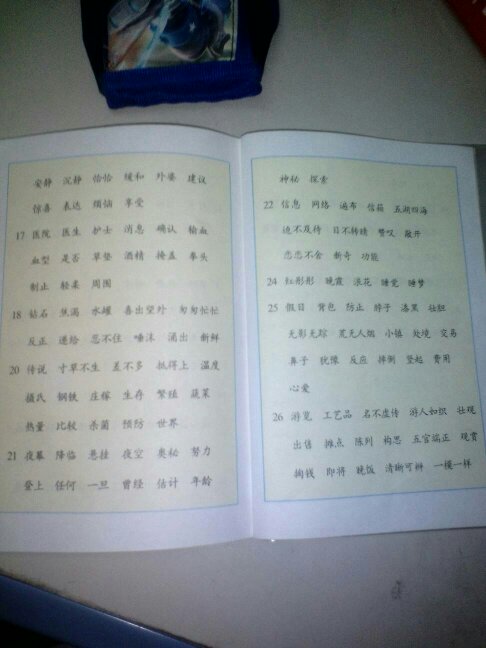 安静 沉静 恰恰 缓和 外婆 建议
惊喜 表达 烦恼 享受
17 医院 医生 护士 消息 确认 输血
血型 是否 草垫 酒精 掩盖 拳头
制止 轻柔 周围
18 钻石 焦渴 水罐 喜出望外 匆匆忙忙
反正 递给 忍不住 唾沫 涌出 新鲜
20 传说 寸草不生 差不多 抵得上 温度
摄氏 钢铁 庄稼 生存 繁殖 蔬菜
热量 比较 杀菌 预防 世界
21 夜幕 降临 悬挂 夜空 奥秘 努力
登上 任何 一旦 曾经 估计 年龄
神秘 探索
22 信息 网络 遍布 信箱 五湖四海
迫不及待 目不转睛 赞叹 敲开
恋恋不舍 新奇 功能
24 红彤彤 晚霞 浪花 睡觉 睡梦
25 假日 背包 防止 脖子 漆黑 壮胆
无影无踪 荒无人烟 小镇 处境 交易
鼻子 犹豫 反应 摔倒 竖起 费用
心爱
26 游览 工艺品 名不虚传 游人如织 壮观
出售 摊点 陈列 构思 五官端正 观赏
掏钱 即将 晚饭 清晰可辨 一模一样